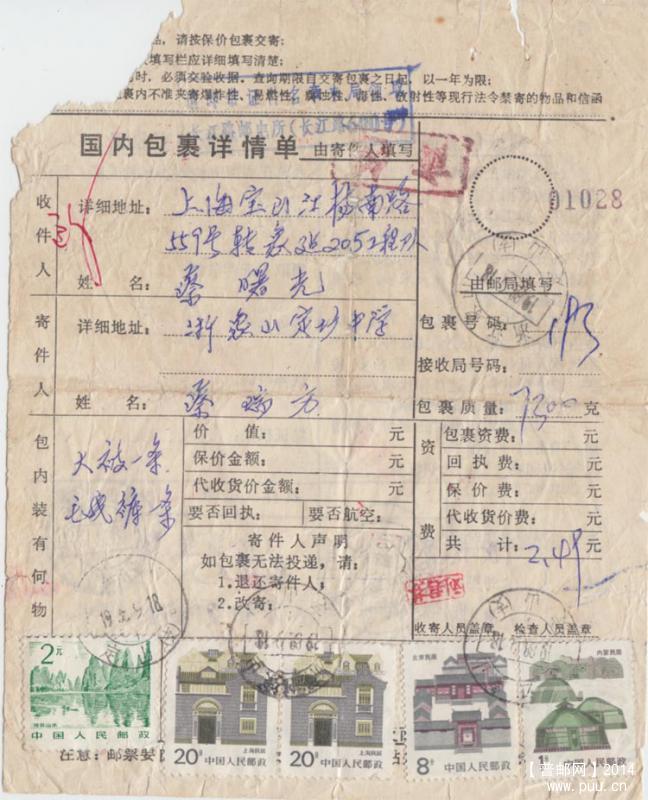 品，请按保价包裹交寄；
填写栏应详细填写清楚；
时，必须交验收据，查询期限自交寄包裹之日起，以一年为限；
裹内不准夹寄爆炸性、易燃性、腐蚀性、毒性、放射性等现行法令禁寄的物品和信函
国内包裹详情单 由寄件人填写
01028
收件人
详细地址： 上海宝山江杨南路
559号转 205工程队
姓 名： 蔡曙光
由邮局填写
寄件人
详细地址： 浙 山 中学
包裹号码： 193
接收局号码：
姓 名： 蔡 方
包裹质量： 7300 克
包内装有何物
大被一条
毛线裤一条
价 值： 元
保价金额： 元
代收货价金额： 元
要否回执： 要否航空：
资费
包裹资费： 元
回执费： 元
保价费： 元
代收货价费： 元
共 计： 2.49 元
寄件人声明
如包裹无法投递，请：
1.退还寄件人；
2.改寄：
收寄人员盖章 检查人员盖章
2元
中国人民邮政
20分 上海民居 中国人民邮政
20分 上海民居 中国人民邮政
北京民居 8分 中国人民邮政
内蒙民居 中国人民邮政
注意：邮票要
【普邮网】2014
www.puu.cn